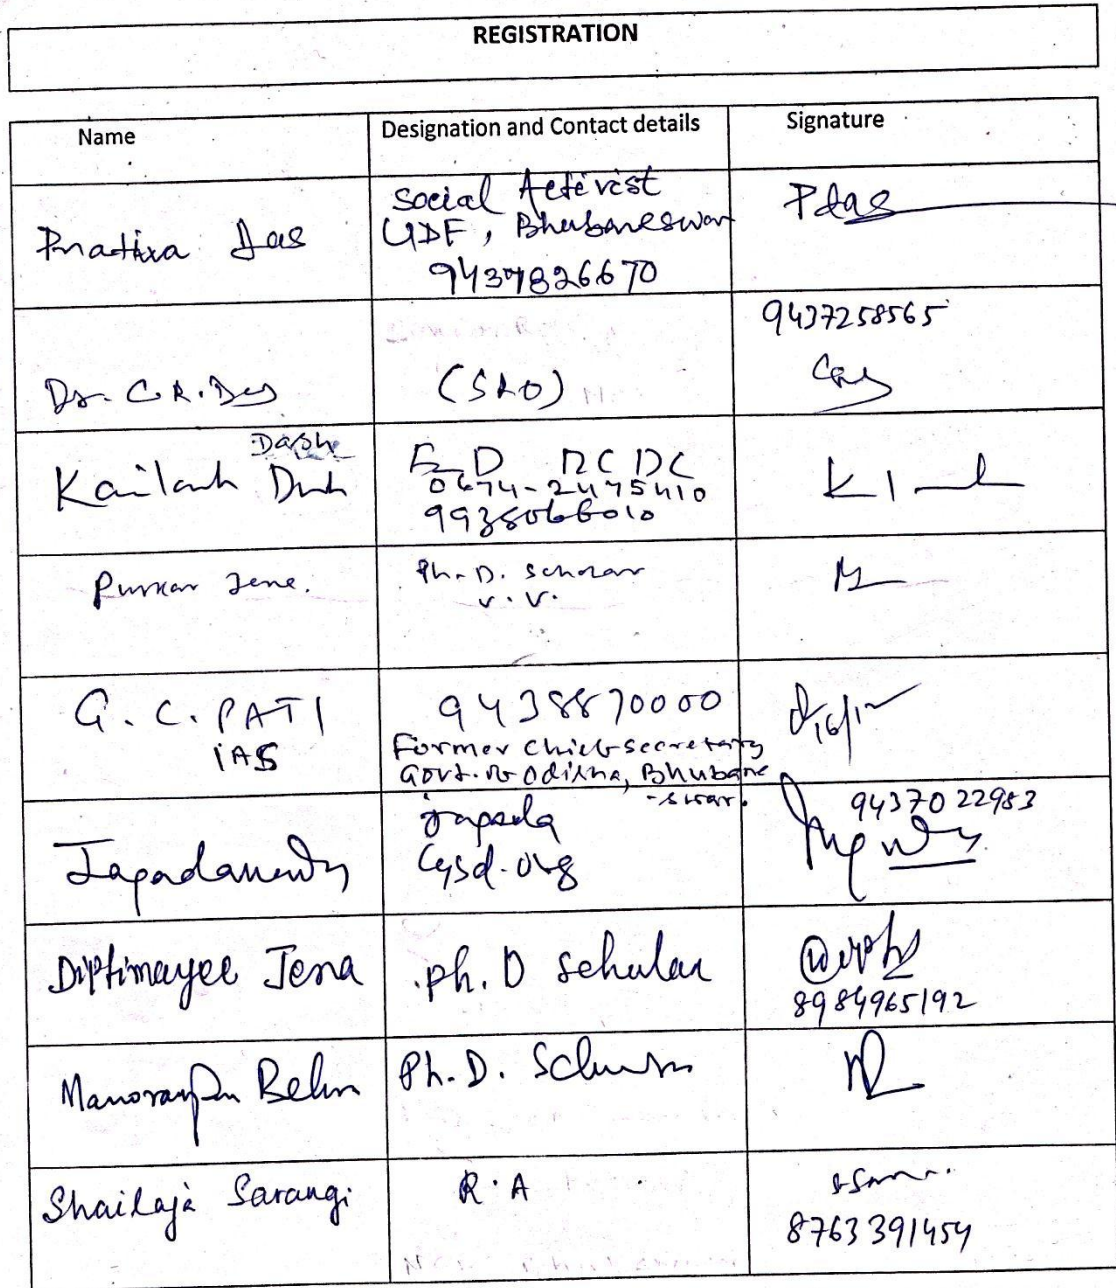 REGISTRATION
Name
Designation and Contact details
Signature
Pratixa Das
Social Activist
UDF, Bhubaneswar
9437826670
Pdas
Dr. C.R. Das
(SRO)
9437258565
Dash
Kailash Dash
E D RCDC
0674-2475410
9938066010
Jena.
Ph.D. Scholar
G. C. PATI
IAS
9438870000
Former Chief Secretary
Govt. of Odisha, Bhubane
-swar.
Jagadananda
jagada
cysd.org
9437022983
Diptimayee Jena
Ph.D Scholar
8984965192
Manoranjan Behra
Ph.D. Scholar
Shailaja Sarangi
R.A
8763391454